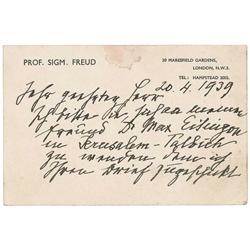 PROF. SIGM. FREUD
20 MARESFIELD GARDENS,
LONDON, N.W.3.
TEL: HAMPSTEAD 2002.
20.4.1939
Sehr geehrter Herr
Ich bitte Sie, sich an meinen
Freund Dr Max Eitingon
in Jerusalem-Talbieh
zu wenden dem ich
Ihren Brief zugeschickt